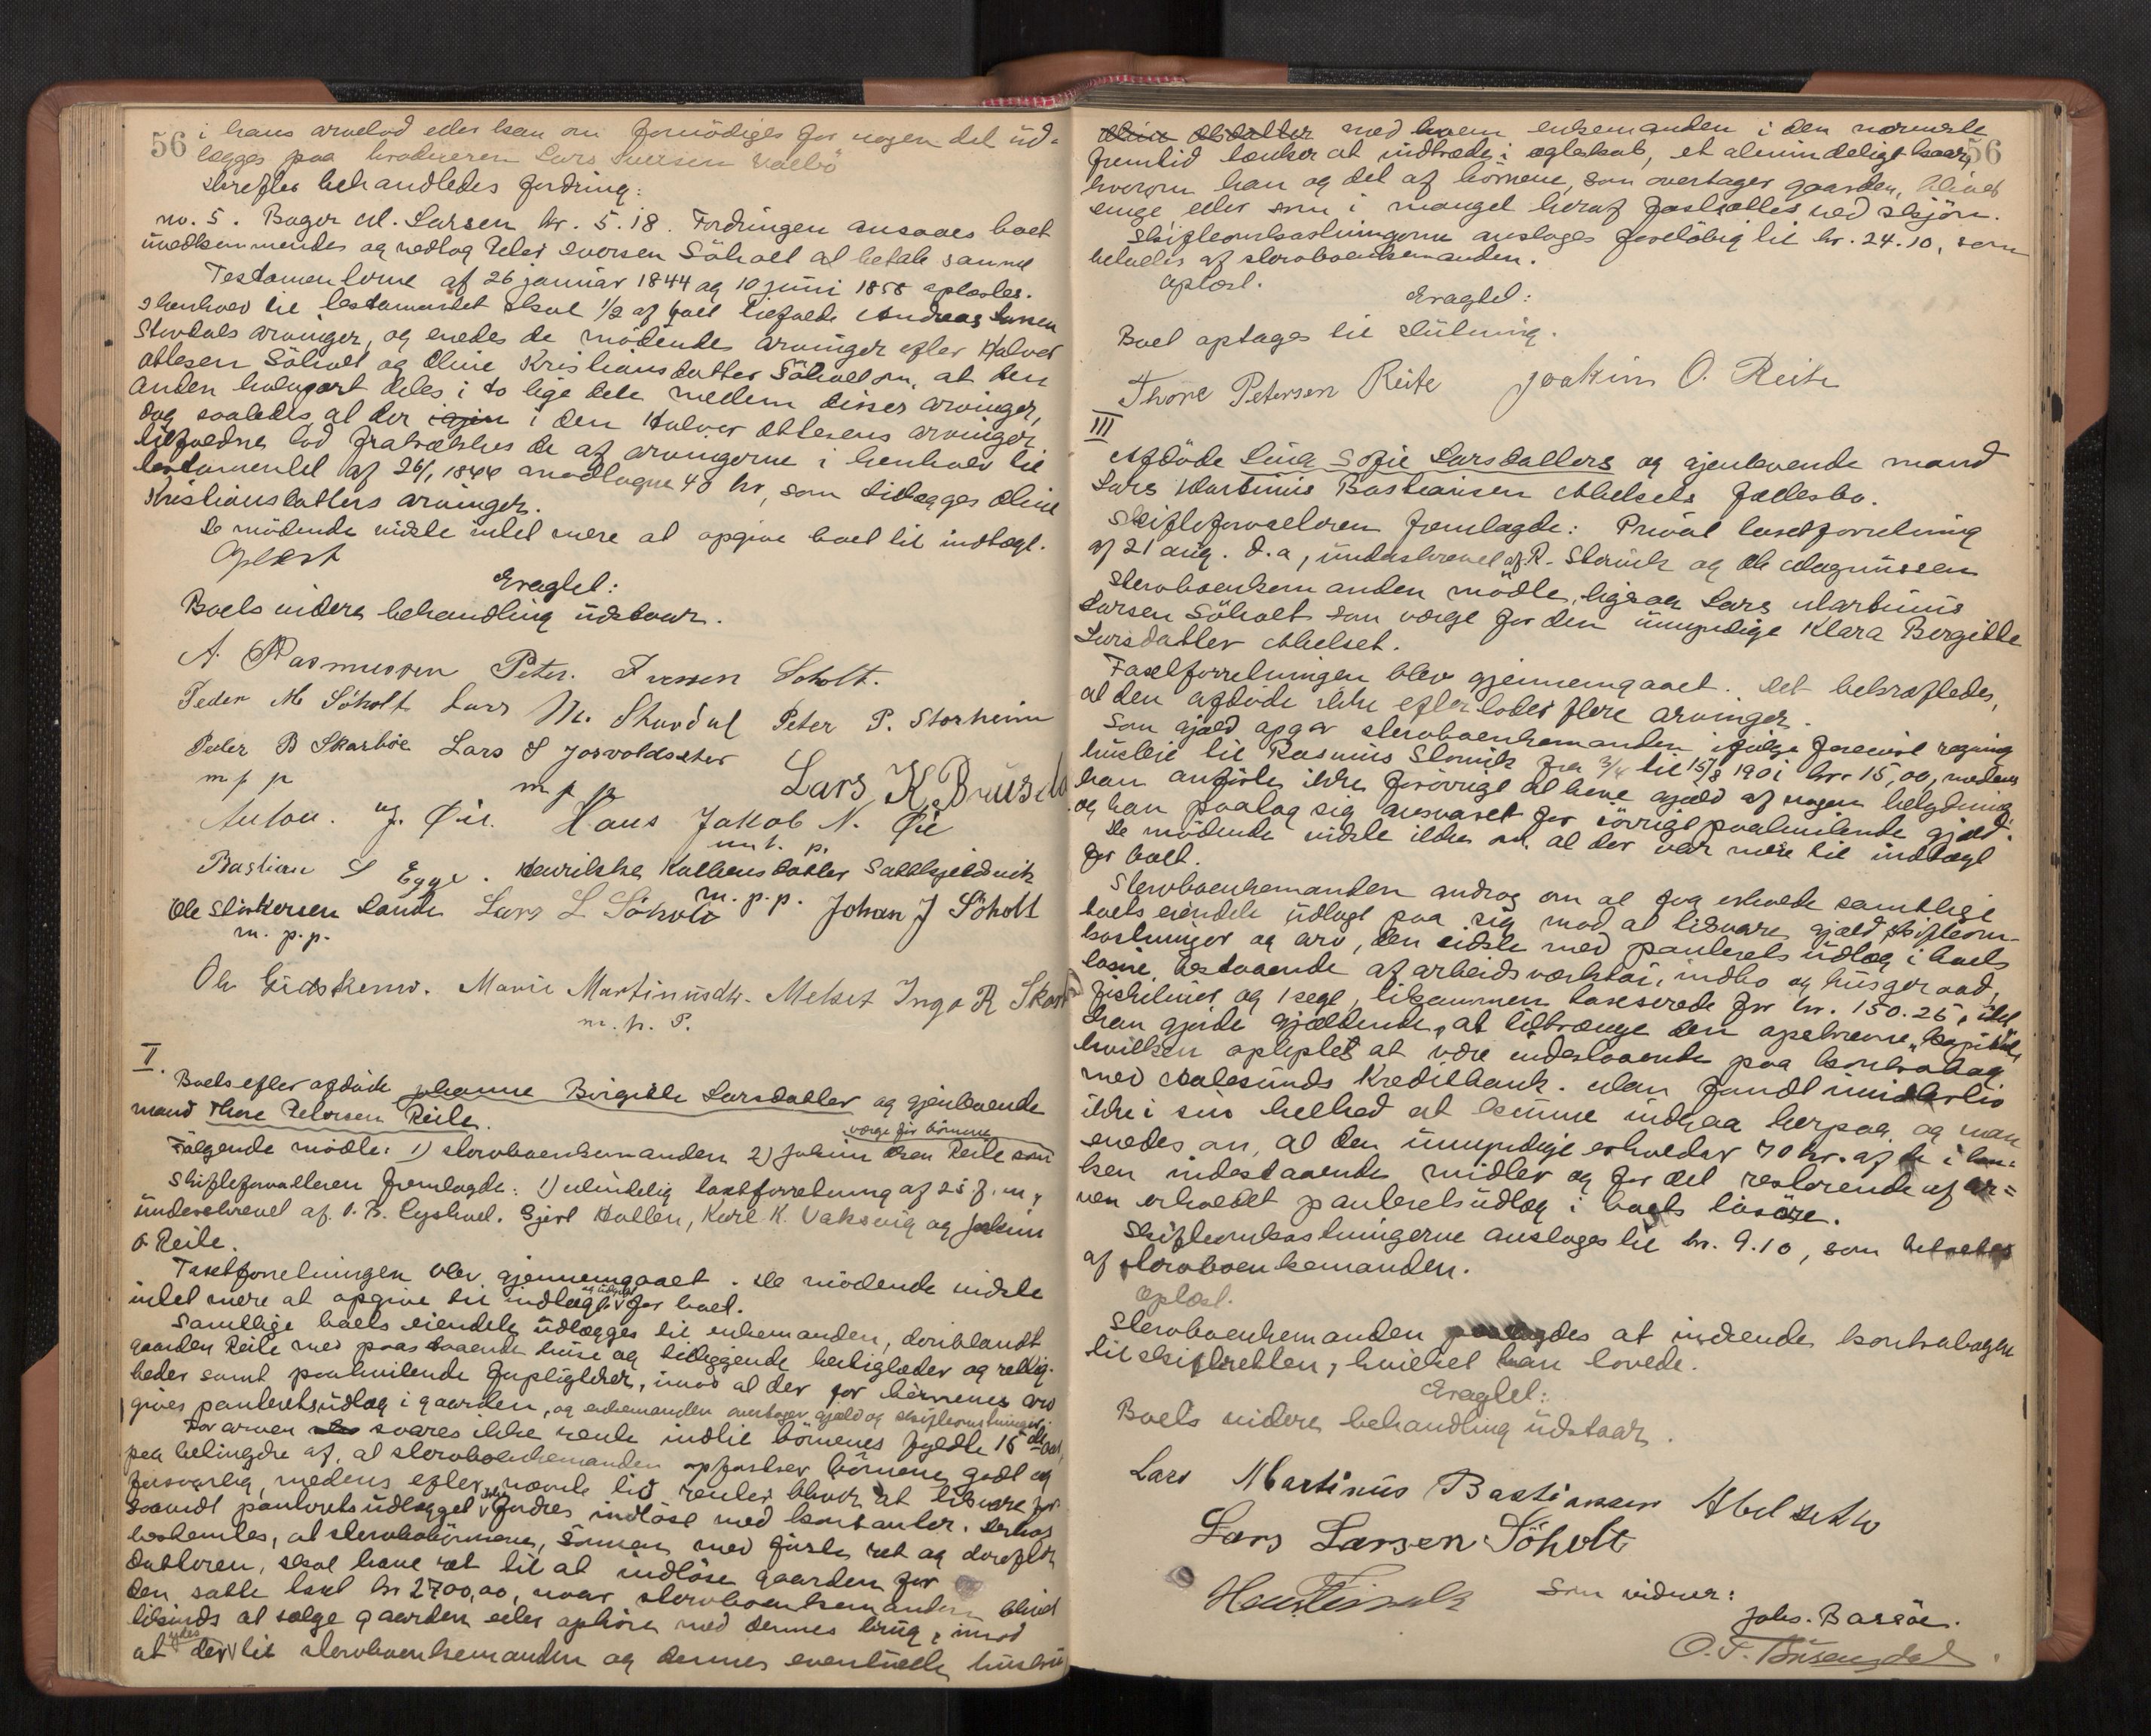 56
i hans arvelod eller kan om fornödiges for nogen del ud-
lægges paa kreditoren Lars Iversen Valbö
Derefter behandledes fordring:
no. 5. Bager M. Larsen kr. 5.18. Fordringen ansaaes boet
uvedkommendes og vedtog Peter Iversen Söholt at betale samme
Testamenterne af 26 januar 1844 og 10 juni 1858 oplæstes.
I henhold til testamentet skal 1/2 af boet tilfalde Andreas Larsen
Stordals arvinger, og enedes de mödende arvinger efter Halvor
Ottesen Söholt og Oline Kristiansdatter Söholt om, at den
anden halvpart deles i to lige dele mellem disses arvinger,
dog saaledes at der igjen i den Halvor Ottesens arvinger
tilfaldne lod fratrækkes de af arvingerne i henhold til
testamentet af 26/1 1844 modtagne 40 kr, som tillægges Oline
Kristiansdatters arvinger.
De mödende vidste intet mere at opgive boet til indtægt.
Oplæst
Eragtet:
Boets videre behandling udstaar.
A. Rasmussen Peter Iversen Soholt.
Peder M Söholt Lars M. Stordal Peter P. Storheim
Peder B Skarböe Lars S Josvoldsæter Lars K. Brusdal
m p p m p p
Anton J. Öie. Hans Jakob N. Öie
m. p.
Bastian S Egge. Henrikke Kolbensdatter Satkjeldsvik
m. p. p.
Ole Slinkersen Lande Lars L Söholt Johan J Söholt
m. p. p.
Ole Eidskrem. Marie Martinusdtr. Melset Inga R Skar
m. p. p.
II.
Boets efter afdöde Johanne Birgitte Larsdatter og gjenlevende
mand Thore Petersen Reite.
værge for börnene
Fölgende mödte: 1) stervboenkemanden 2) Joakim Olsen Reite som
Skifteforvalteren fremlagde: 1) udindelig taxtforretning af 25 f. m,
underskrevet af O. B. Lyshol. Gjert Hollen, Karl K. Vaksvig og Joakim
O Reite.
Taxtforretningen blev gjennemgaaet. De mödende vidste
intet mere at opgive til indtægt og udgift for boet.
Samtlige boets eiendele udlægges til enkemanden, deriblandt
gaarden Reite med paastaaende huse og tilliggende herligheder og rettig-
heder samt paahvilende forpligtelser, imod at der for börnenes arv
gives panteretsudlæg i gaarden, og enkemanden overtager gjæld og skifteomkostninger.
For arven svares ikke rente indtil börnenes fyldte 15de aar,
paa betingelse af, at sterboenkemanden opfostrer börnene godt og
forsvarlig, medens efter nævnte tid renter bliver at tilsvare for
saavidt panteretsudlægget ikke fordres indlöst med kontanter. Derhos
bestemtes, at sterbobörnene, sönnen med förste ret og derefter
datteren, skal have ret til at indlöse gaarden for
den satte taxt kr 2700,00, naar sterboenkemanden bliver
tilsinds at sælge gaarden eller ophöre med dennes brug, imod
at der ydes til sterboenkemanden og dennes eventuelle hustru
56
Oline Olsdatter med hvem enkemanden i den nærmeste
fremtid tænker at indtræde i ægteskab, et almindeligt kaar,
hvorom han og det af börnene, som overtager gaarden, bliver
enige eller som i mangel heraf fastsættes ved skjön.
Skifteomkostningerne ansloges foreløbig til kr. 24.10, som
betaltes af sterboenkemanden.
Oplæst.
Eragtet:
Boet optages til slutning.
Thore Petersen Reite Joakim O. Reite
III
Afdöde Lina Sofie Larsdatters og gjenlevende mand
Lars Martinus Bastiansen Abelsets fællesbo.
Skifteforvalteren fremlagde: Privat taxtforretning
af 21 aug. d.a, underskrevet af R. Stavik og Ole Magnussen
Sterboenkemanden mödte, ligesaa Lars Martinus
Larsen Söholt som værge for den umyndige Klara Bergitte
Larsdatter Abelset.
Taxtforretningen blev gjennemgaaet. Det bekræftedes,
at den afdöde ikke efterlader flere arvinger.
Som gjæld opgav sterboenkemanden ifölge forevist regning
husleie til Rasmus Slonik fra 3/4 til 15/8 1901 kr. 15,00, medens
han anförte ikke forövrigt at have gjæld af nogen betydning
og han paatog sig ansvaret for övrigt paahvilende gjæld.
De mödende vidste ikke om, at der var mere til indtægt
for boet.
Sterboenkemanden androg om at faa erholde samtlige
boets eiendele udlagt paa sig mod at tilsvare gjæld skifteom-
kostninger og arv, den sidste med panterets udlæg i boets
lösöre, bestaaende af arbeidsværktöi, indbo og husgeraad,
fiskeliner og 1 segl, tilsammen taxerede for kr. 150.25, idet
han gjorde gjældende, at tiltrænge den opskrevne kapital,
hvilken oplystes at være indestaaende paa kontrabog
med Aalesunds Kreditbank. Man fandt imidlertid
ikke i sin helhed at kunne indgaa herpaa, og man
enedes om, at den umyndige erholder 70 kr. af de i ban-
ken indestaaende midler og for det resterende af ar=
ven erholdt panteretsudlæg i boets lösöre.
Skifteomkostningerne ansloges til kr. 9.10, som betaltes
af sterboenkemanden.
Oplæst.
Sterboenkemanden paalagdes at indsende kontrabogen
til skifteretten, hvilket han lovede.
Eragtet:
Boets videre behandling udstaar.
Lars Martinus Bastiansen Abelseth
Lars Larsen Söholt
Som vidner:
Johs. Bassöe.
O. T. Brusengdal.